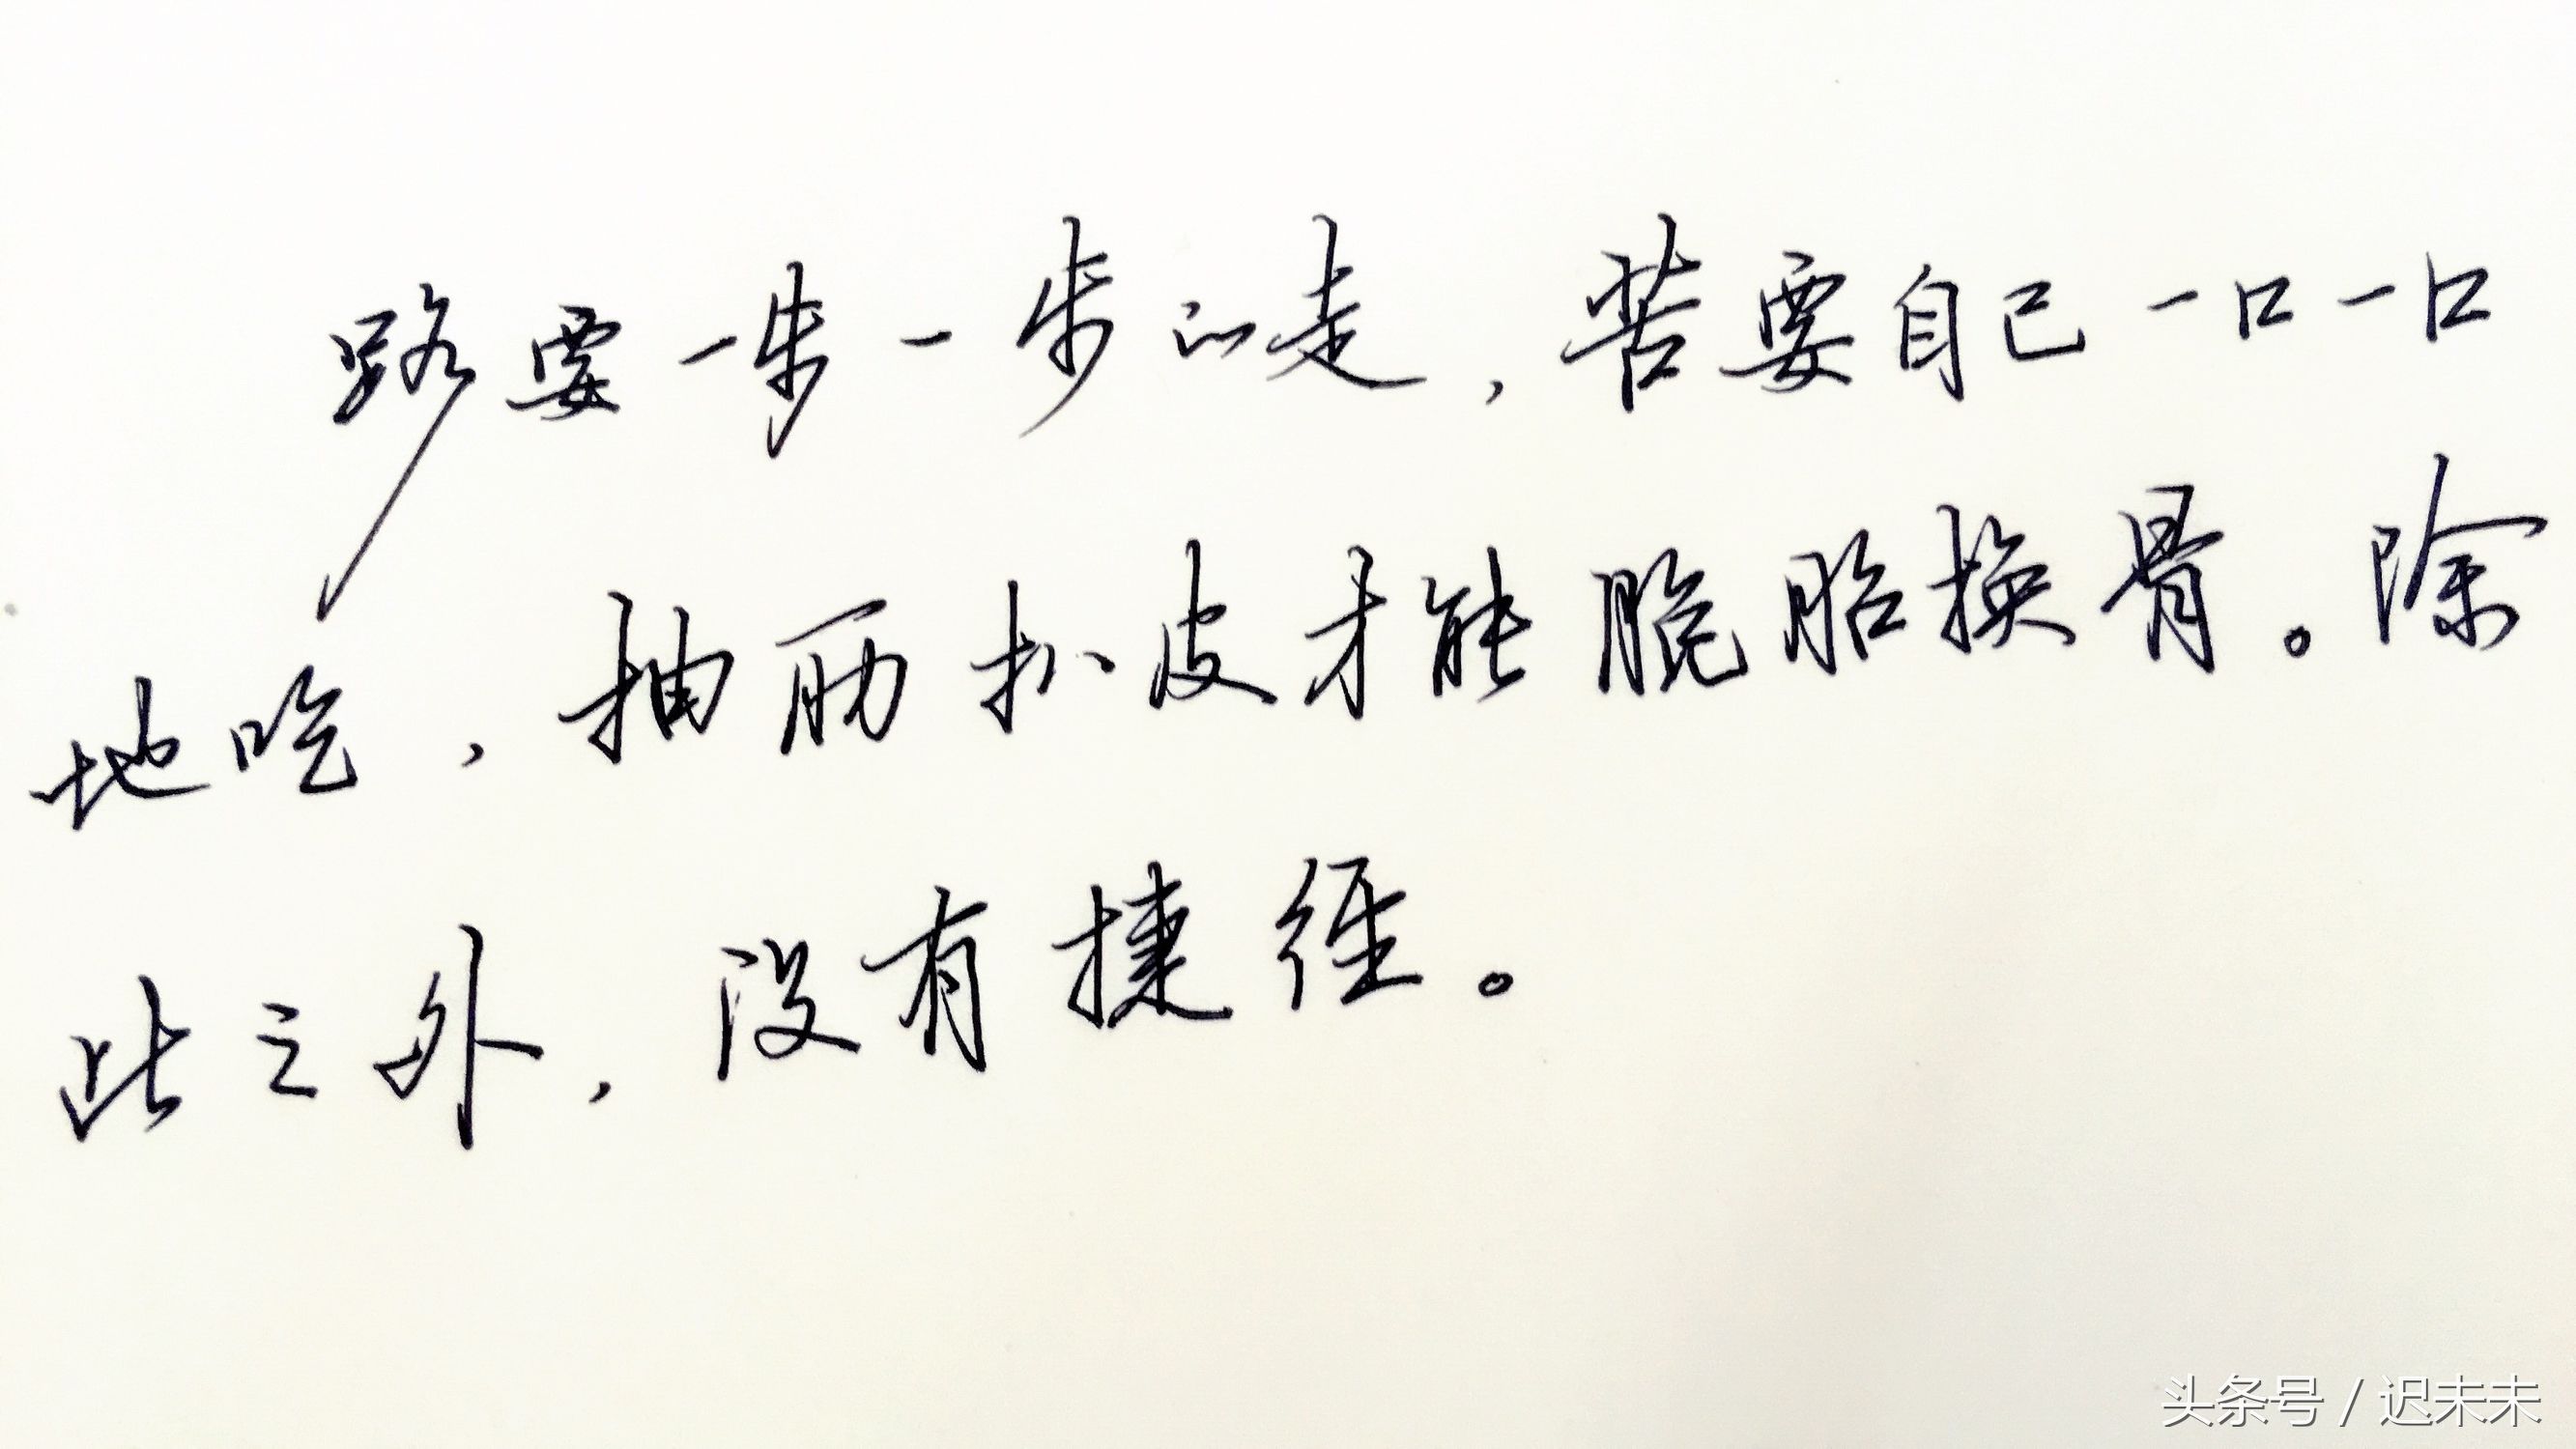 路要一步一步的走，苦要自己一口一口
地吃，抽筋扒皮才能脱胎换骨。除
此之外，没有捷径。
头条号 / 迟未未